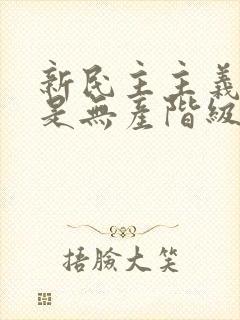 新民主主義
是無產階級
捂臉大笑